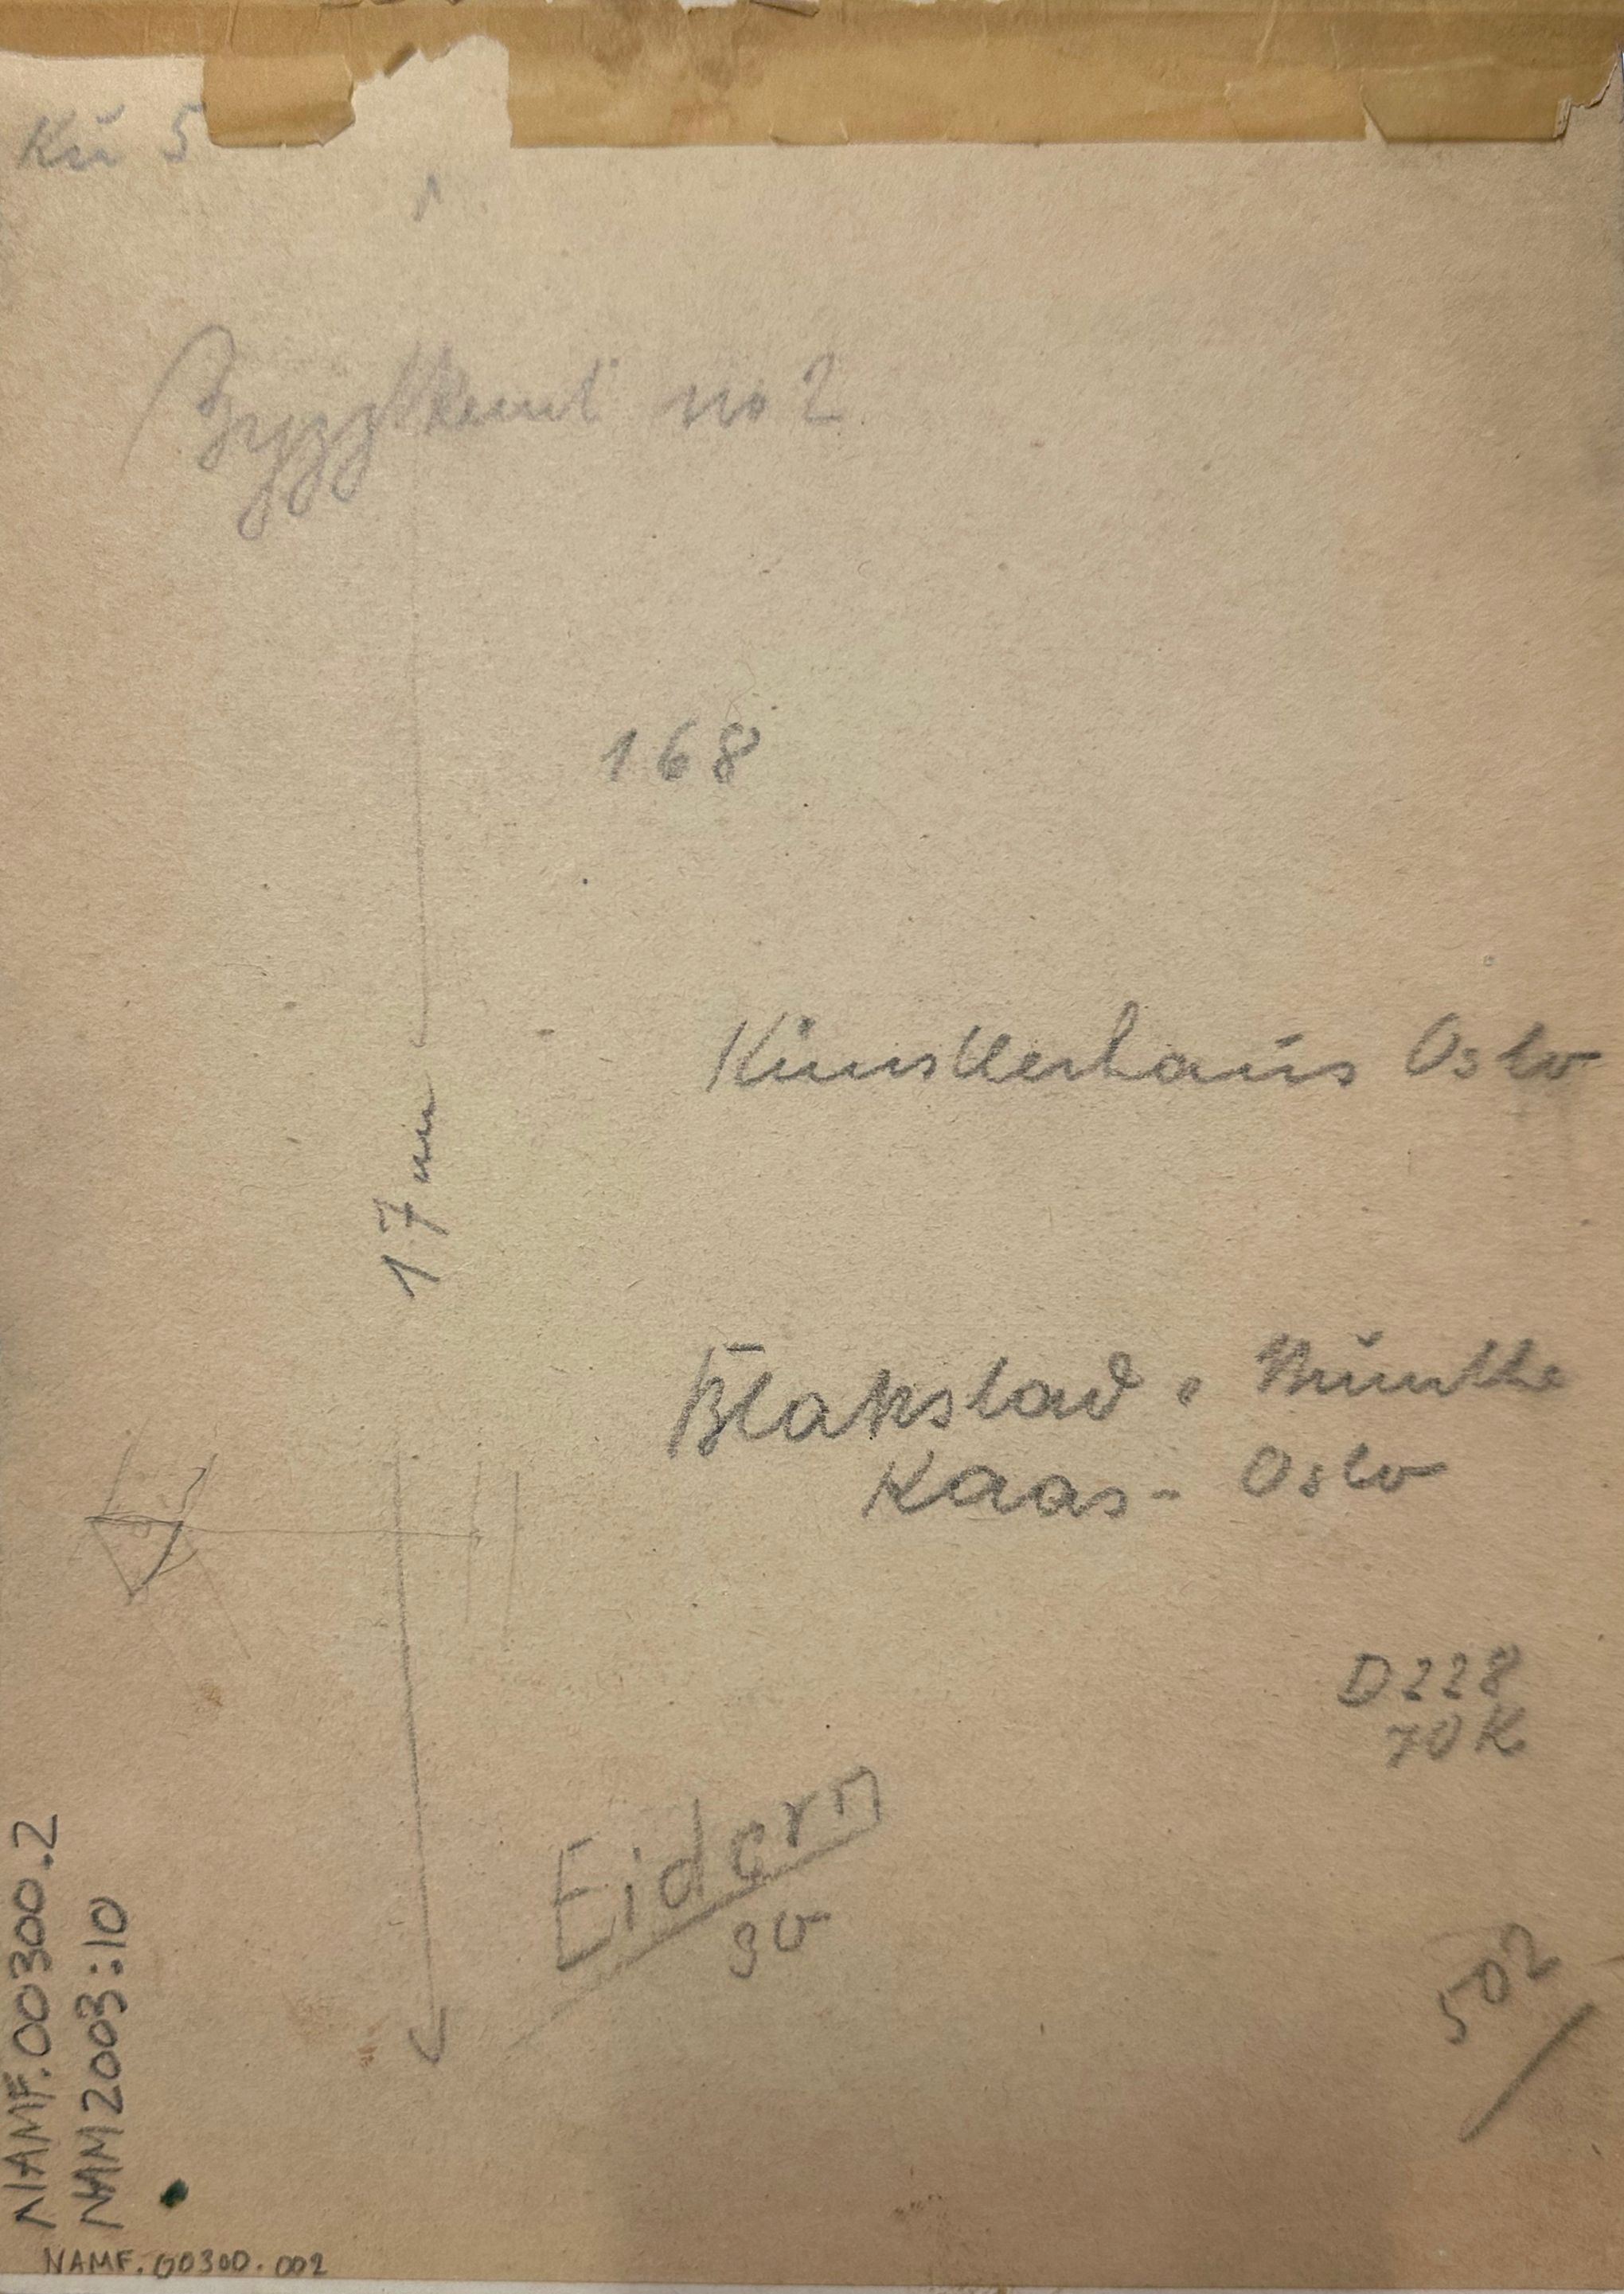 Kü 5
Byggekunst no 2
168
Künstlerhaus Oslo
17 cm
Blakstad. Munthe
Kaas - Oslo
D228
70 K
Eidern
90
502
NAMF.00300.2
NAM2003:10
NAMF.00300.002